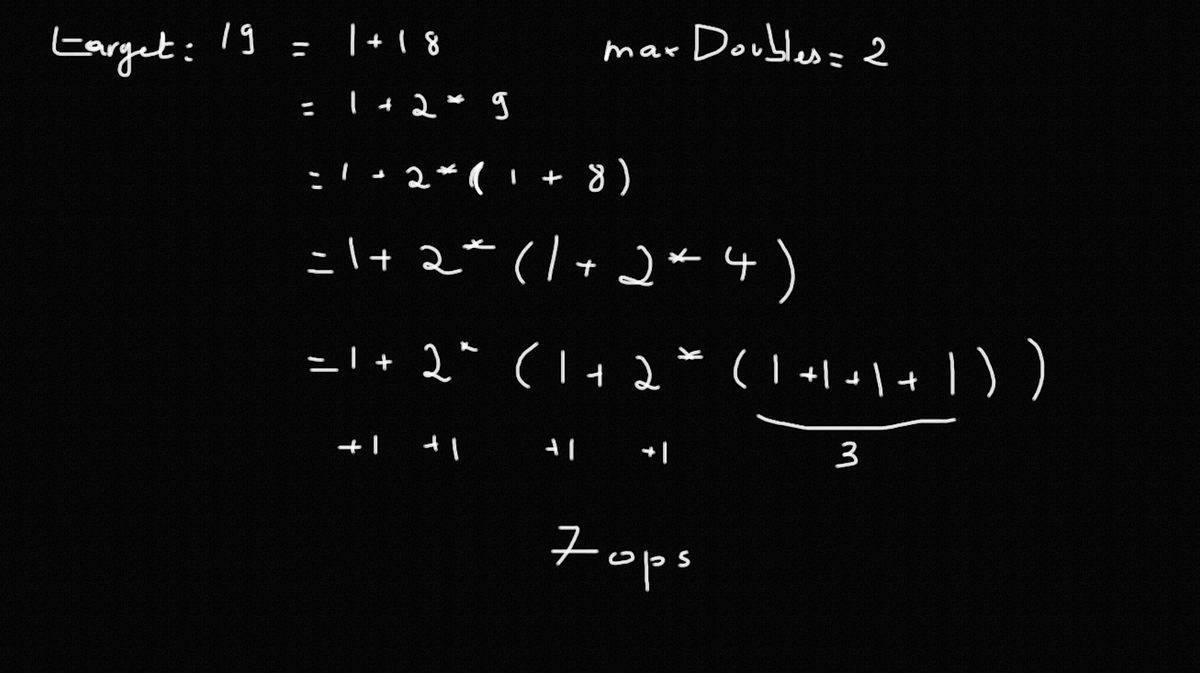 target: 19 = 1+18 maxDoubles = 2
= 1 + 2 * 9
= 1 + 2 * ( 1 + 8 )
= 1 + 2 * ( 1 + 2 * 4 )
= 1 + 2 * ( 1 + 2 * ( 1 + 1 + 1 + 1 ) )
+1 +1 +1 +1 3
7 ops